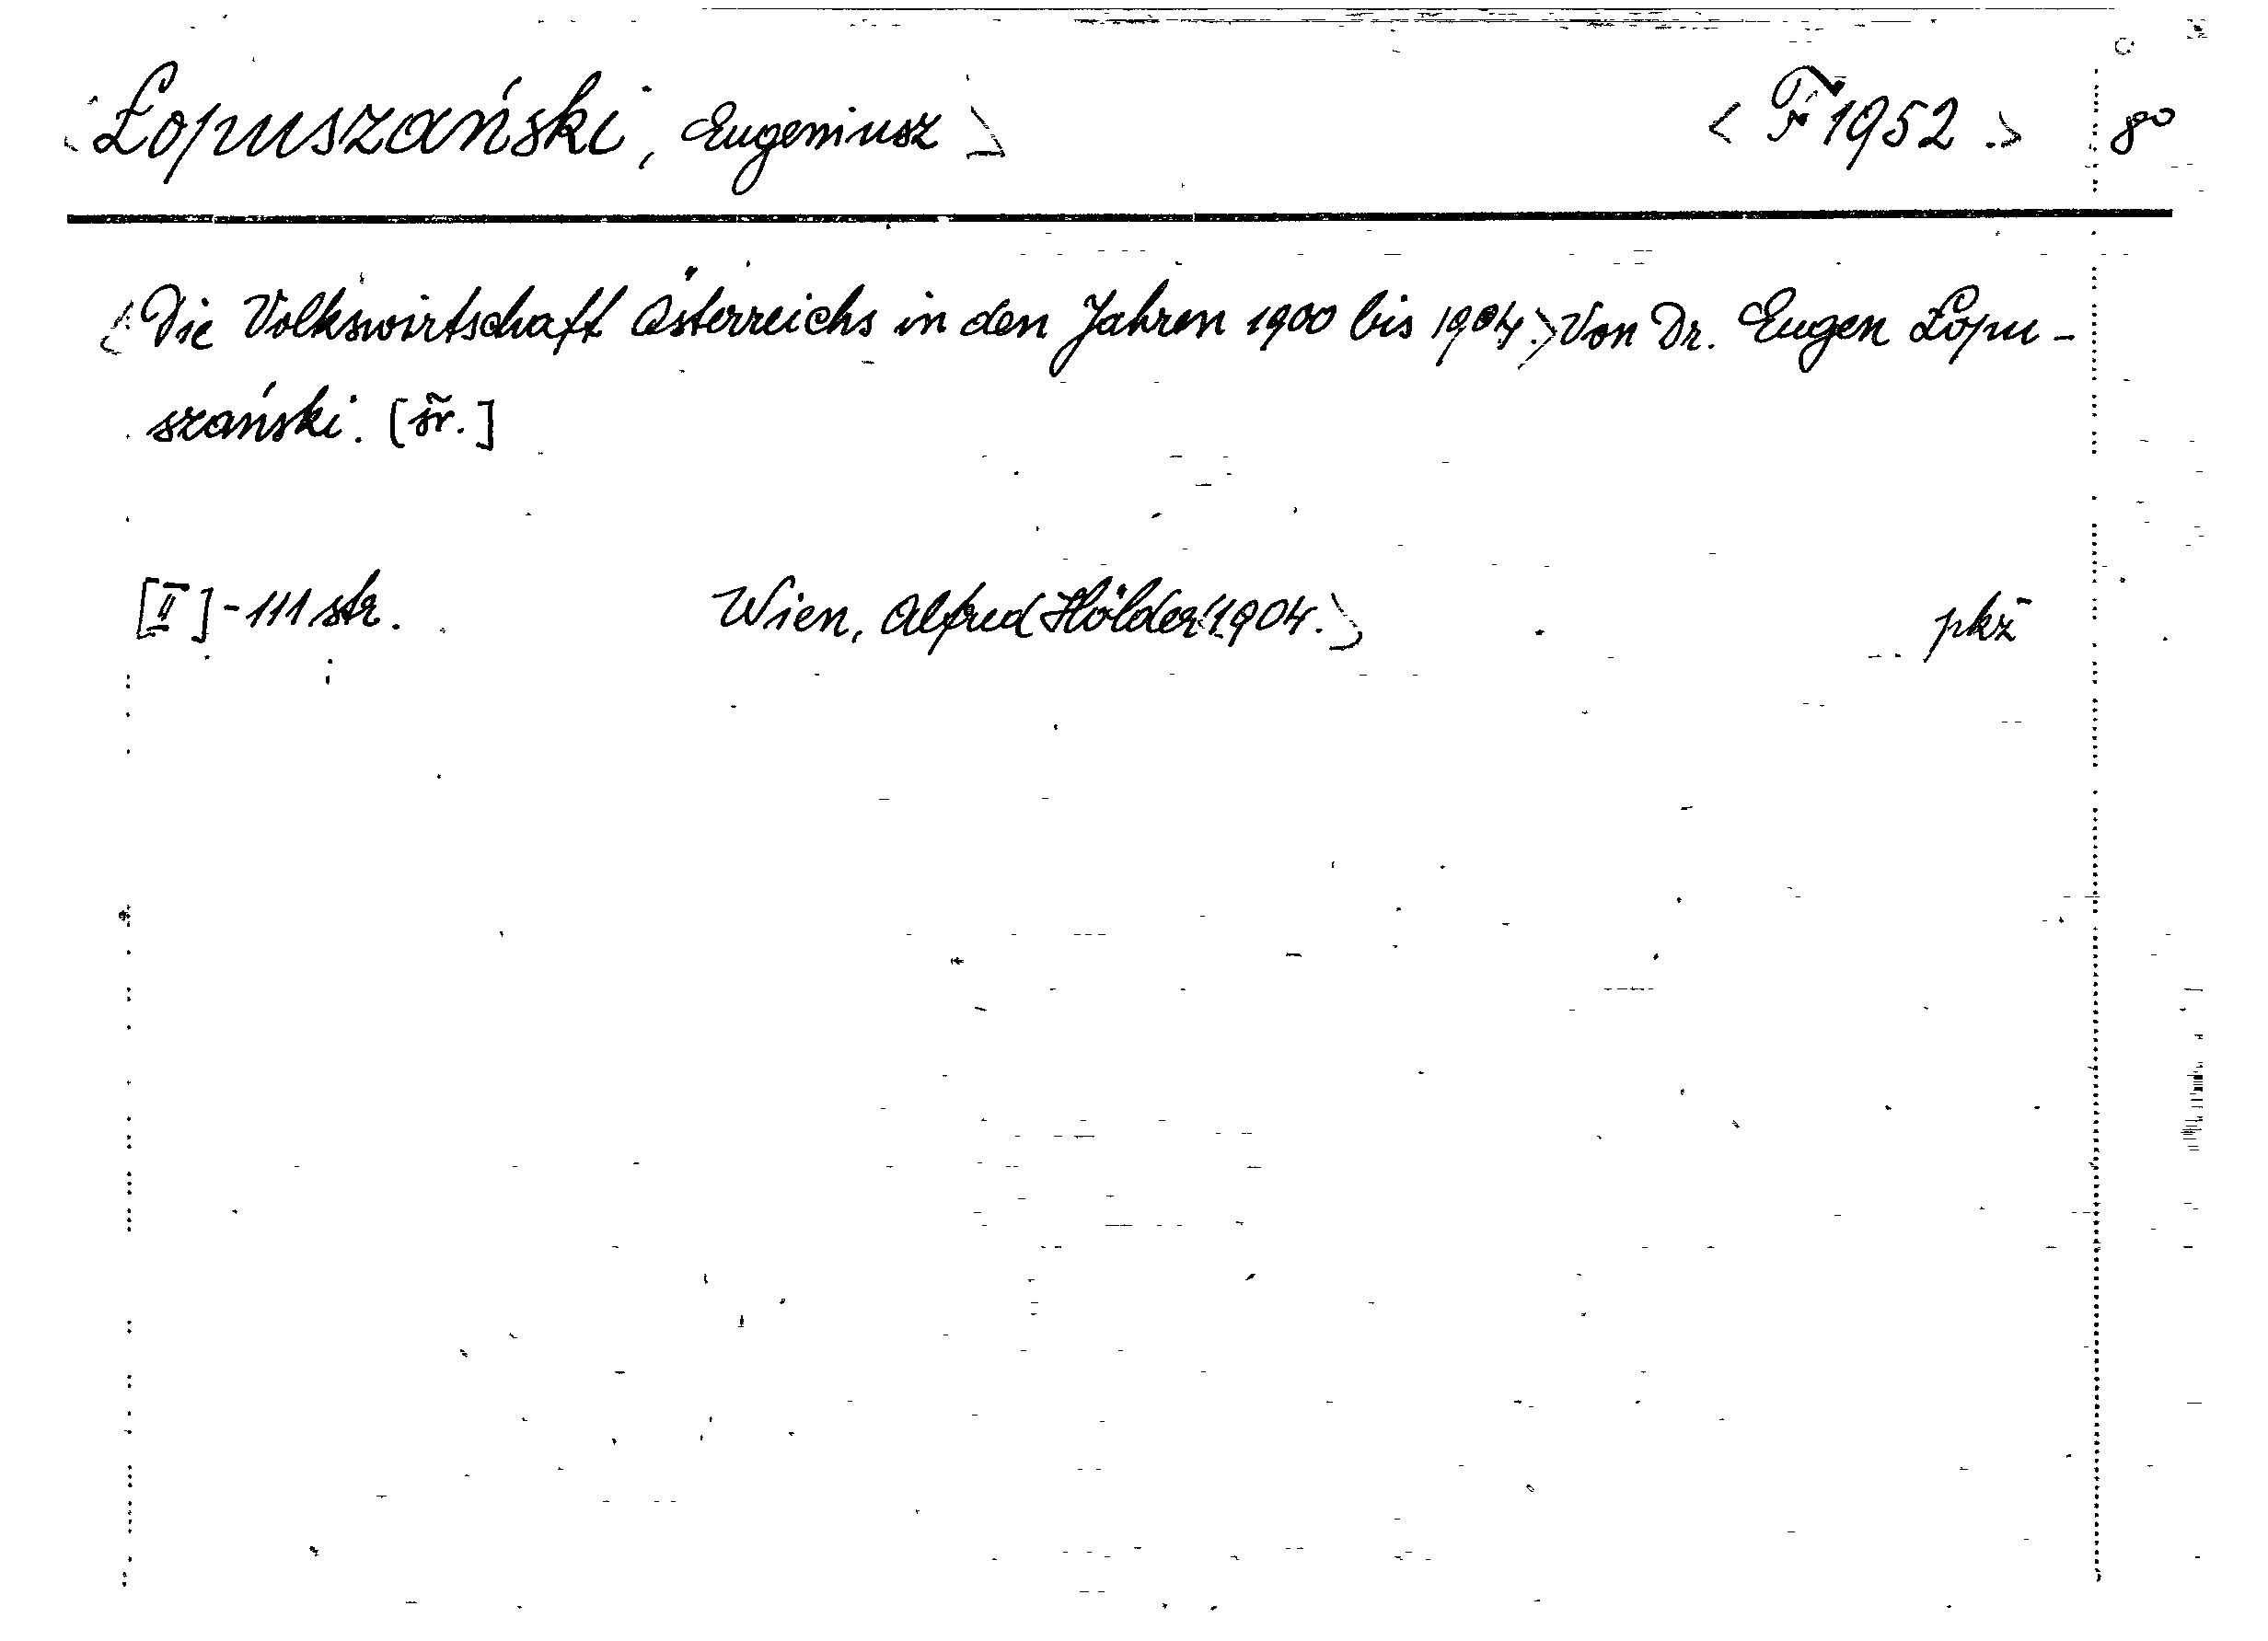 <Łopuszański, Eugeniusz> <F 1952.> 8°
<Die Volkswirtschaft Österreichs in den Jahren 1900 bis 1904.> Von Dr. Eugen Łopu-
szański. [šr.]
[II]-111 str. Wien, Alfred Hölder <1904.> pkž